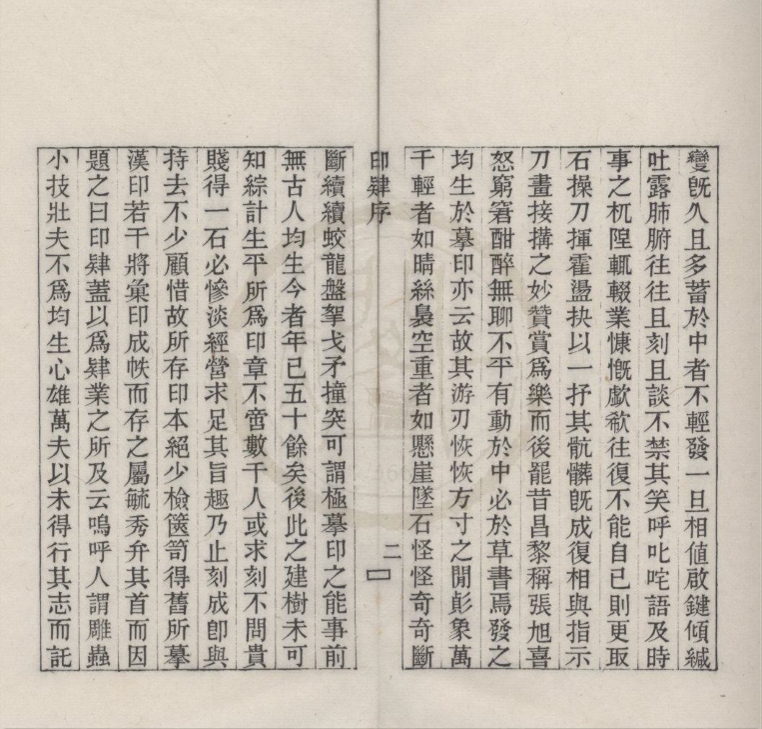 變旣久且多蓄於中者不輕發一旦相値啟鍵傾緘
吐露肺腑往往且刻且談不禁其笑呼叱咤語及時
事之杌隉輒輟業慷慨歔欷往復不能自已則更取
石操刀揮霍盪抉以一抒其骯髒旣成復相與指示
刀畫接搆之妙贊賞爲樂而後罷昔昌黎稱張旭喜
怒窮窘酣醉無聊不平有動於中必於草書焉發之
均生於摹印亦云故其游刃恢恢方寸之閒髟象萬
千輕者如晴絲裊空重者如懸崖墜石怪怪奇奇斷
印肄序
二
斷續續蛟龍盤拏戈矛撞突可謂極摹印之能事前
無古人均生今者年已五十餘矣後此之建樹未可
知綜計生平所爲印章不啻數千人或求刻不問貴
賤得一石必慘淡經營求足其旨趣乃止刻成卽與
持去不少顧惜故所存印本絕少檢篋笥得舊所摹
漢印若干將彙印成帙而存之屬毓秀弁其首而因
題之曰印肄蓋以爲肄業之所及云嗚呼人謂雕蟲
小技壯夫不爲均生心雄萬夫以未得行其志而託